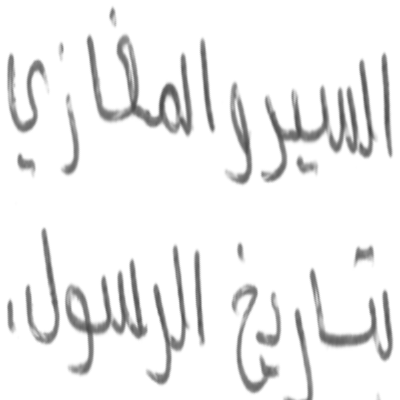 السير والمغازي
تاريخ الرسول،